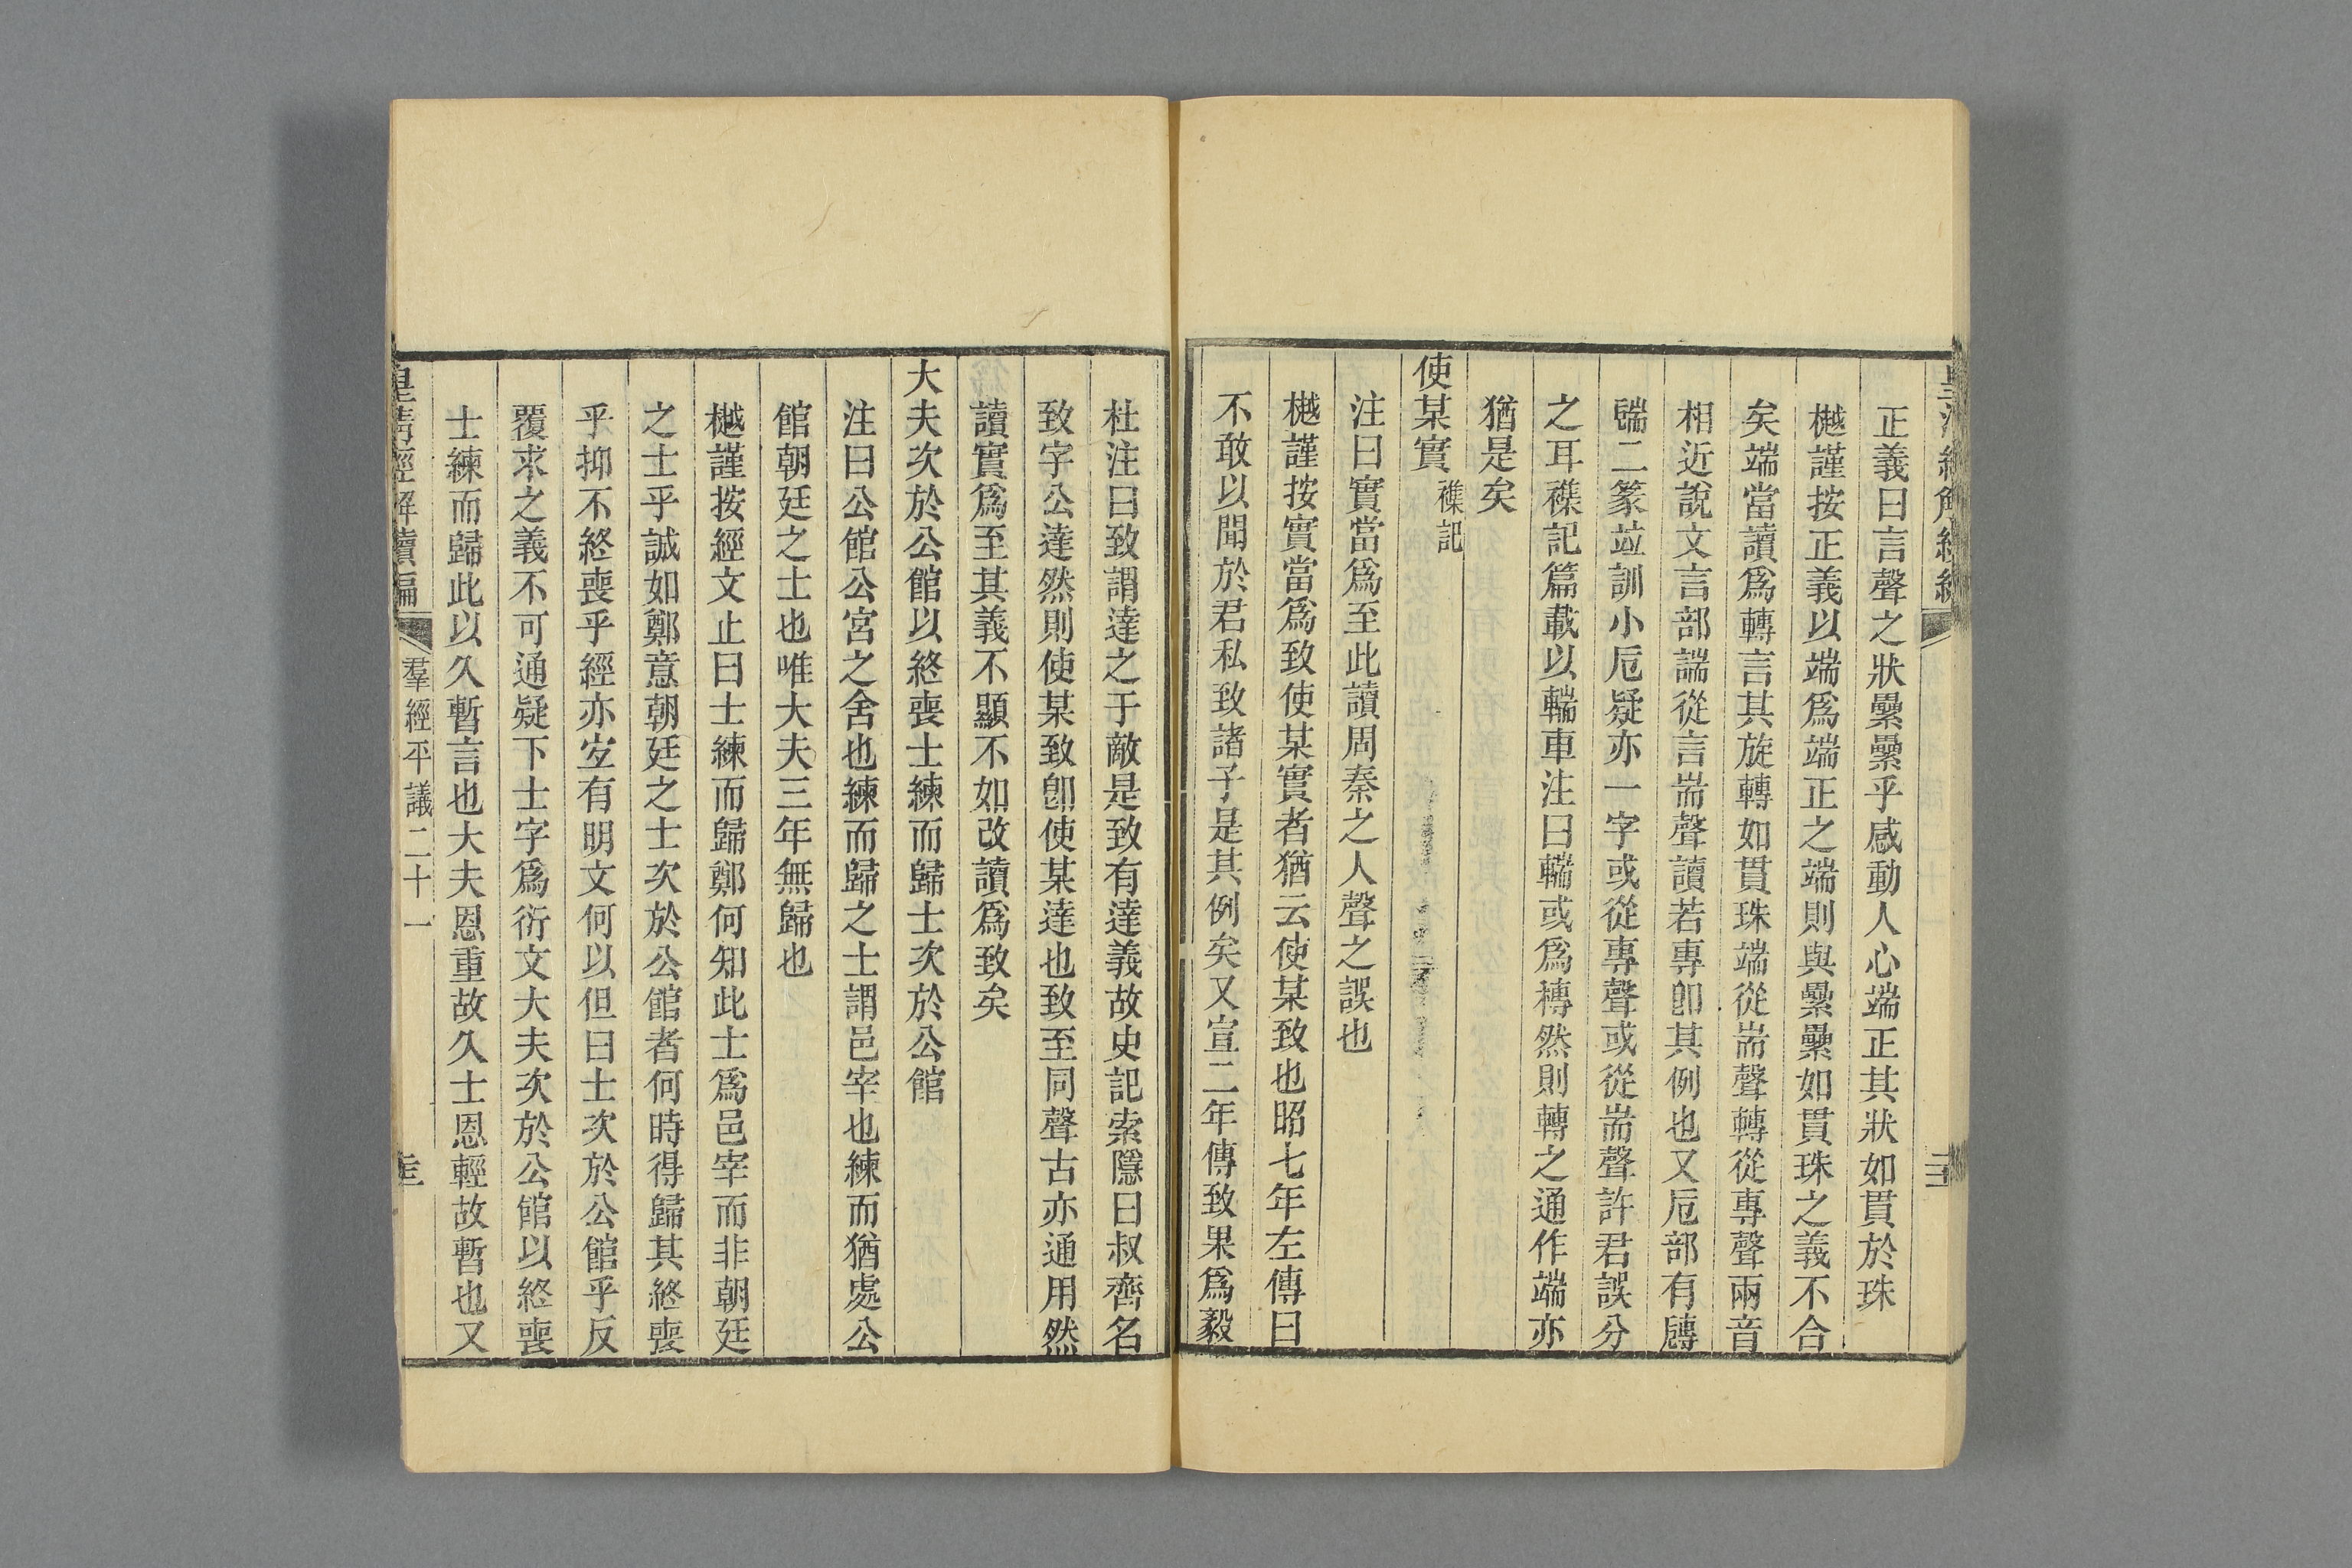 正義曰言聲之狀纍纍乎感動人心端正其狀如貫於珠
樾謹按正義以端爲端正之端則與纍纍如貫珠之義不合
矣端當讀爲轉言其旋轉如貫珠端從耑聲轉從專聲兩音
相近說文言部諯從言耑聲讀若專卽其例也又卮部有𦓝
𦓝二篆竝訓小卮疑亦一字或從專聲或從耑聲許君誤分
之耳襍記篇載以輲車注曰輲或爲槫然則轉之通作端亦
猶是矣
使某實 襍記
注曰實當爲至此讀周秦之人聲之誤也
樾謹按實當爲致使某實者猶云使某致也昭七年左傳曰
不敢以聞於君私致諸子是其例矣又宣二年傳致果爲毅
杜注曰致謂達之于敵是致有達義故史記索隱曰叔齊名
致字公達然則使某致卽使某達也致至同聲古亦通用然
讀實爲至其義不顯不如改讀爲致矣
大夫次於公館以終喪士練而歸士次於公館
注曰公館公宮之舍也練而歸之士謂邑宰也練而猶處公
館朝廷之士也唯大夫三年無歸也
樾謹按經文止曰士練而歸鄭何知此士爲邑宰而非朝廷
之士乎誠如鄭意朝廷之士次於公館者何時得歸其終喪
乎抑不終喪乎經亦宐有明文何以但曰士次於公館乎反
覆求之義不可通疑下士字爲衍文大夫次於公館以終喪
士練而歸此以久暫言也大夫恩重故久士恩輕故暫也又
皇淸經解續編
羣經平議二十一